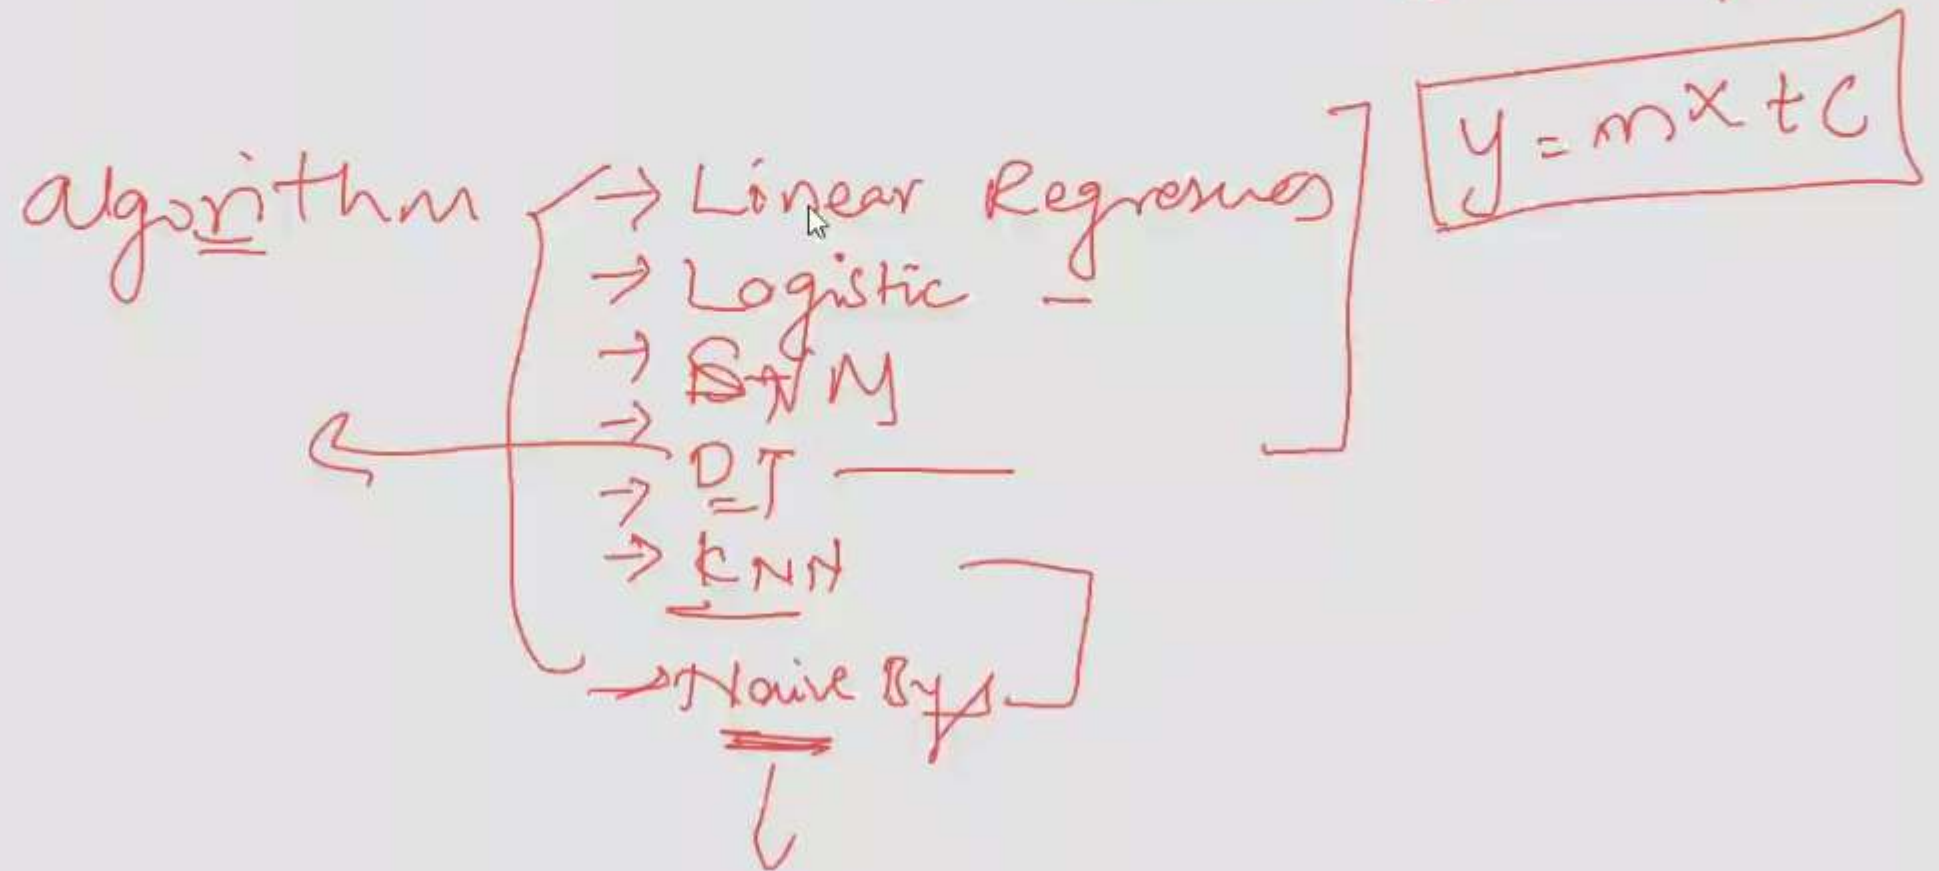 y = mx + c
algorithm → Linear Regression
→ Logistic –
→ SVM
→ DT
→ KNN
→ Naive Bys